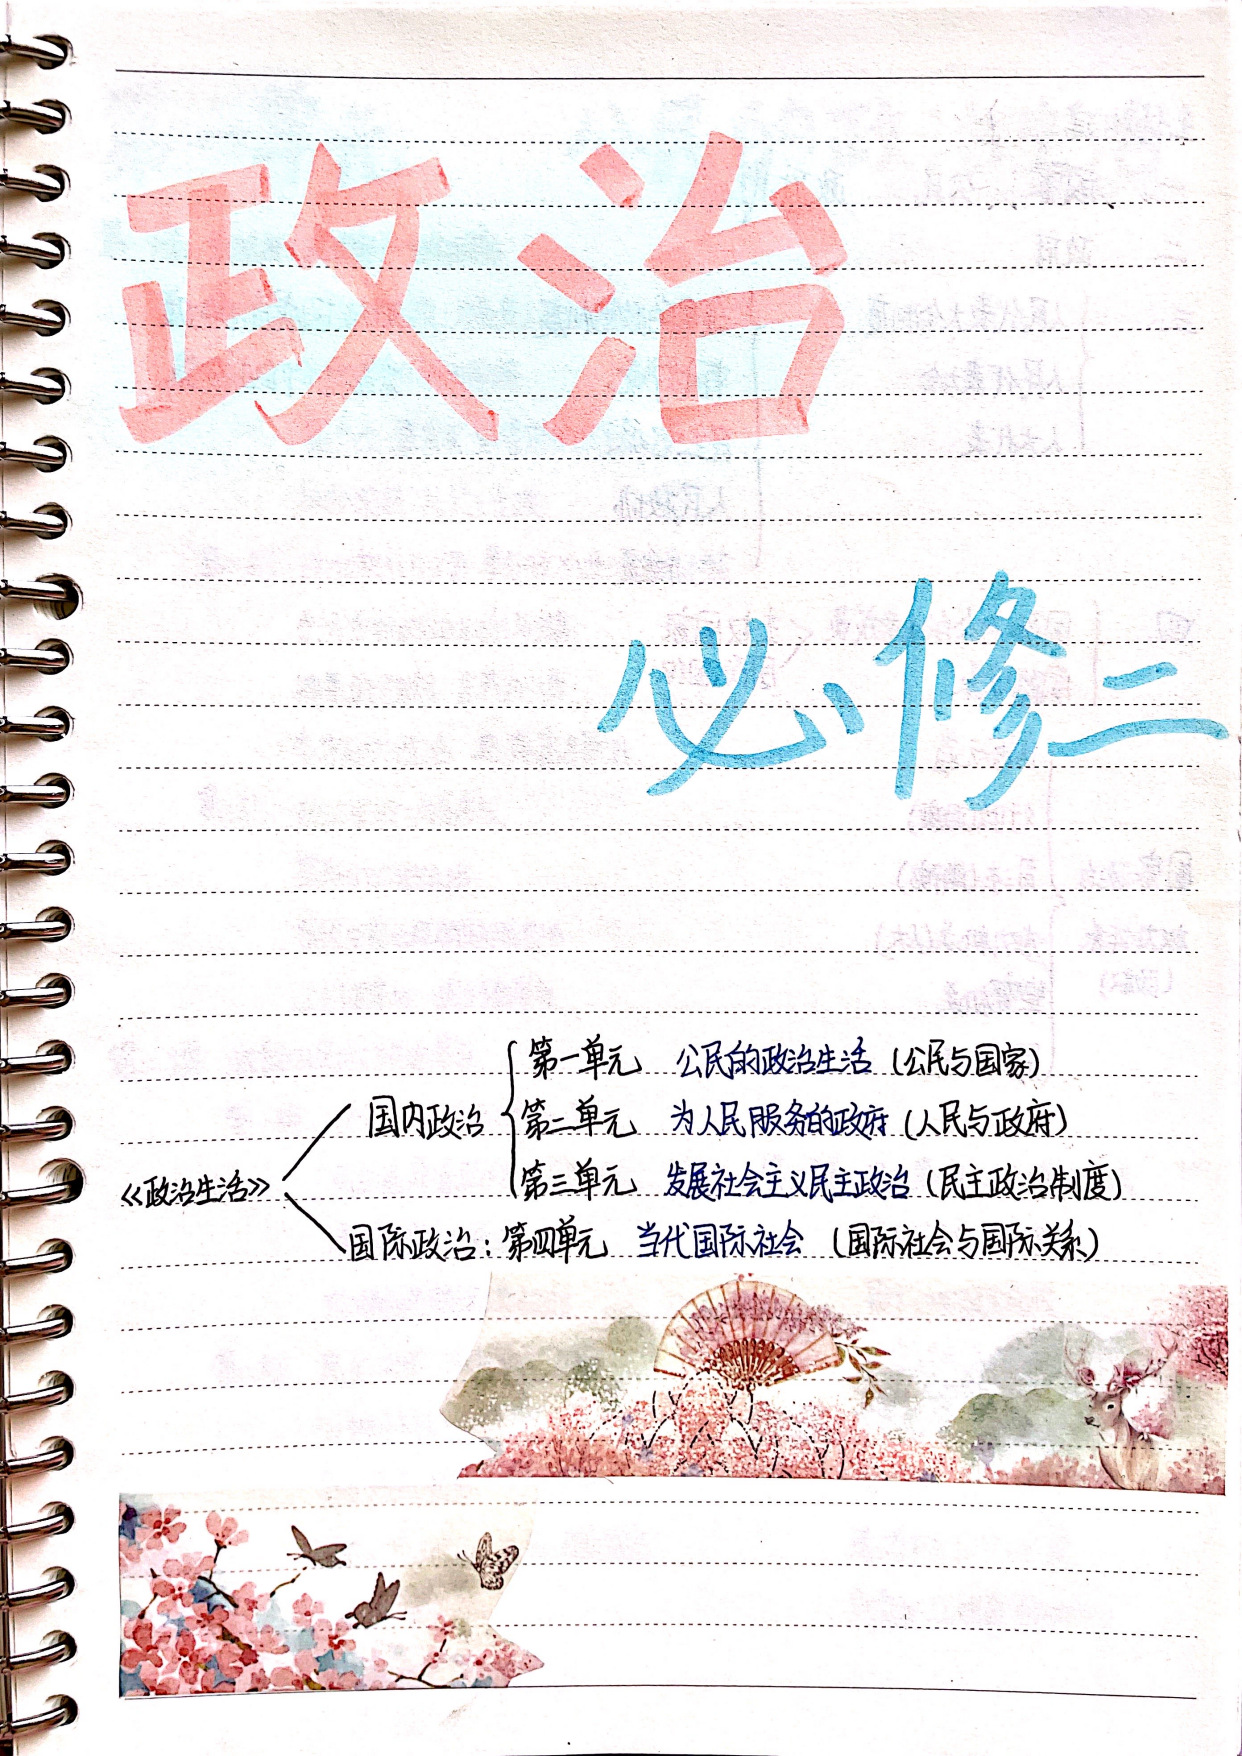 政治
必修二
第一单元 公民的政治生活 (公民与国家)
国内政治 第二单元 为人民服务的政府 (人民与政府)
《政治生活》 第三单元 发展社会主义民主政治 (民主政治制度)
国际政治: 第四单元 当代国际社会 (国际社会与国际关系)